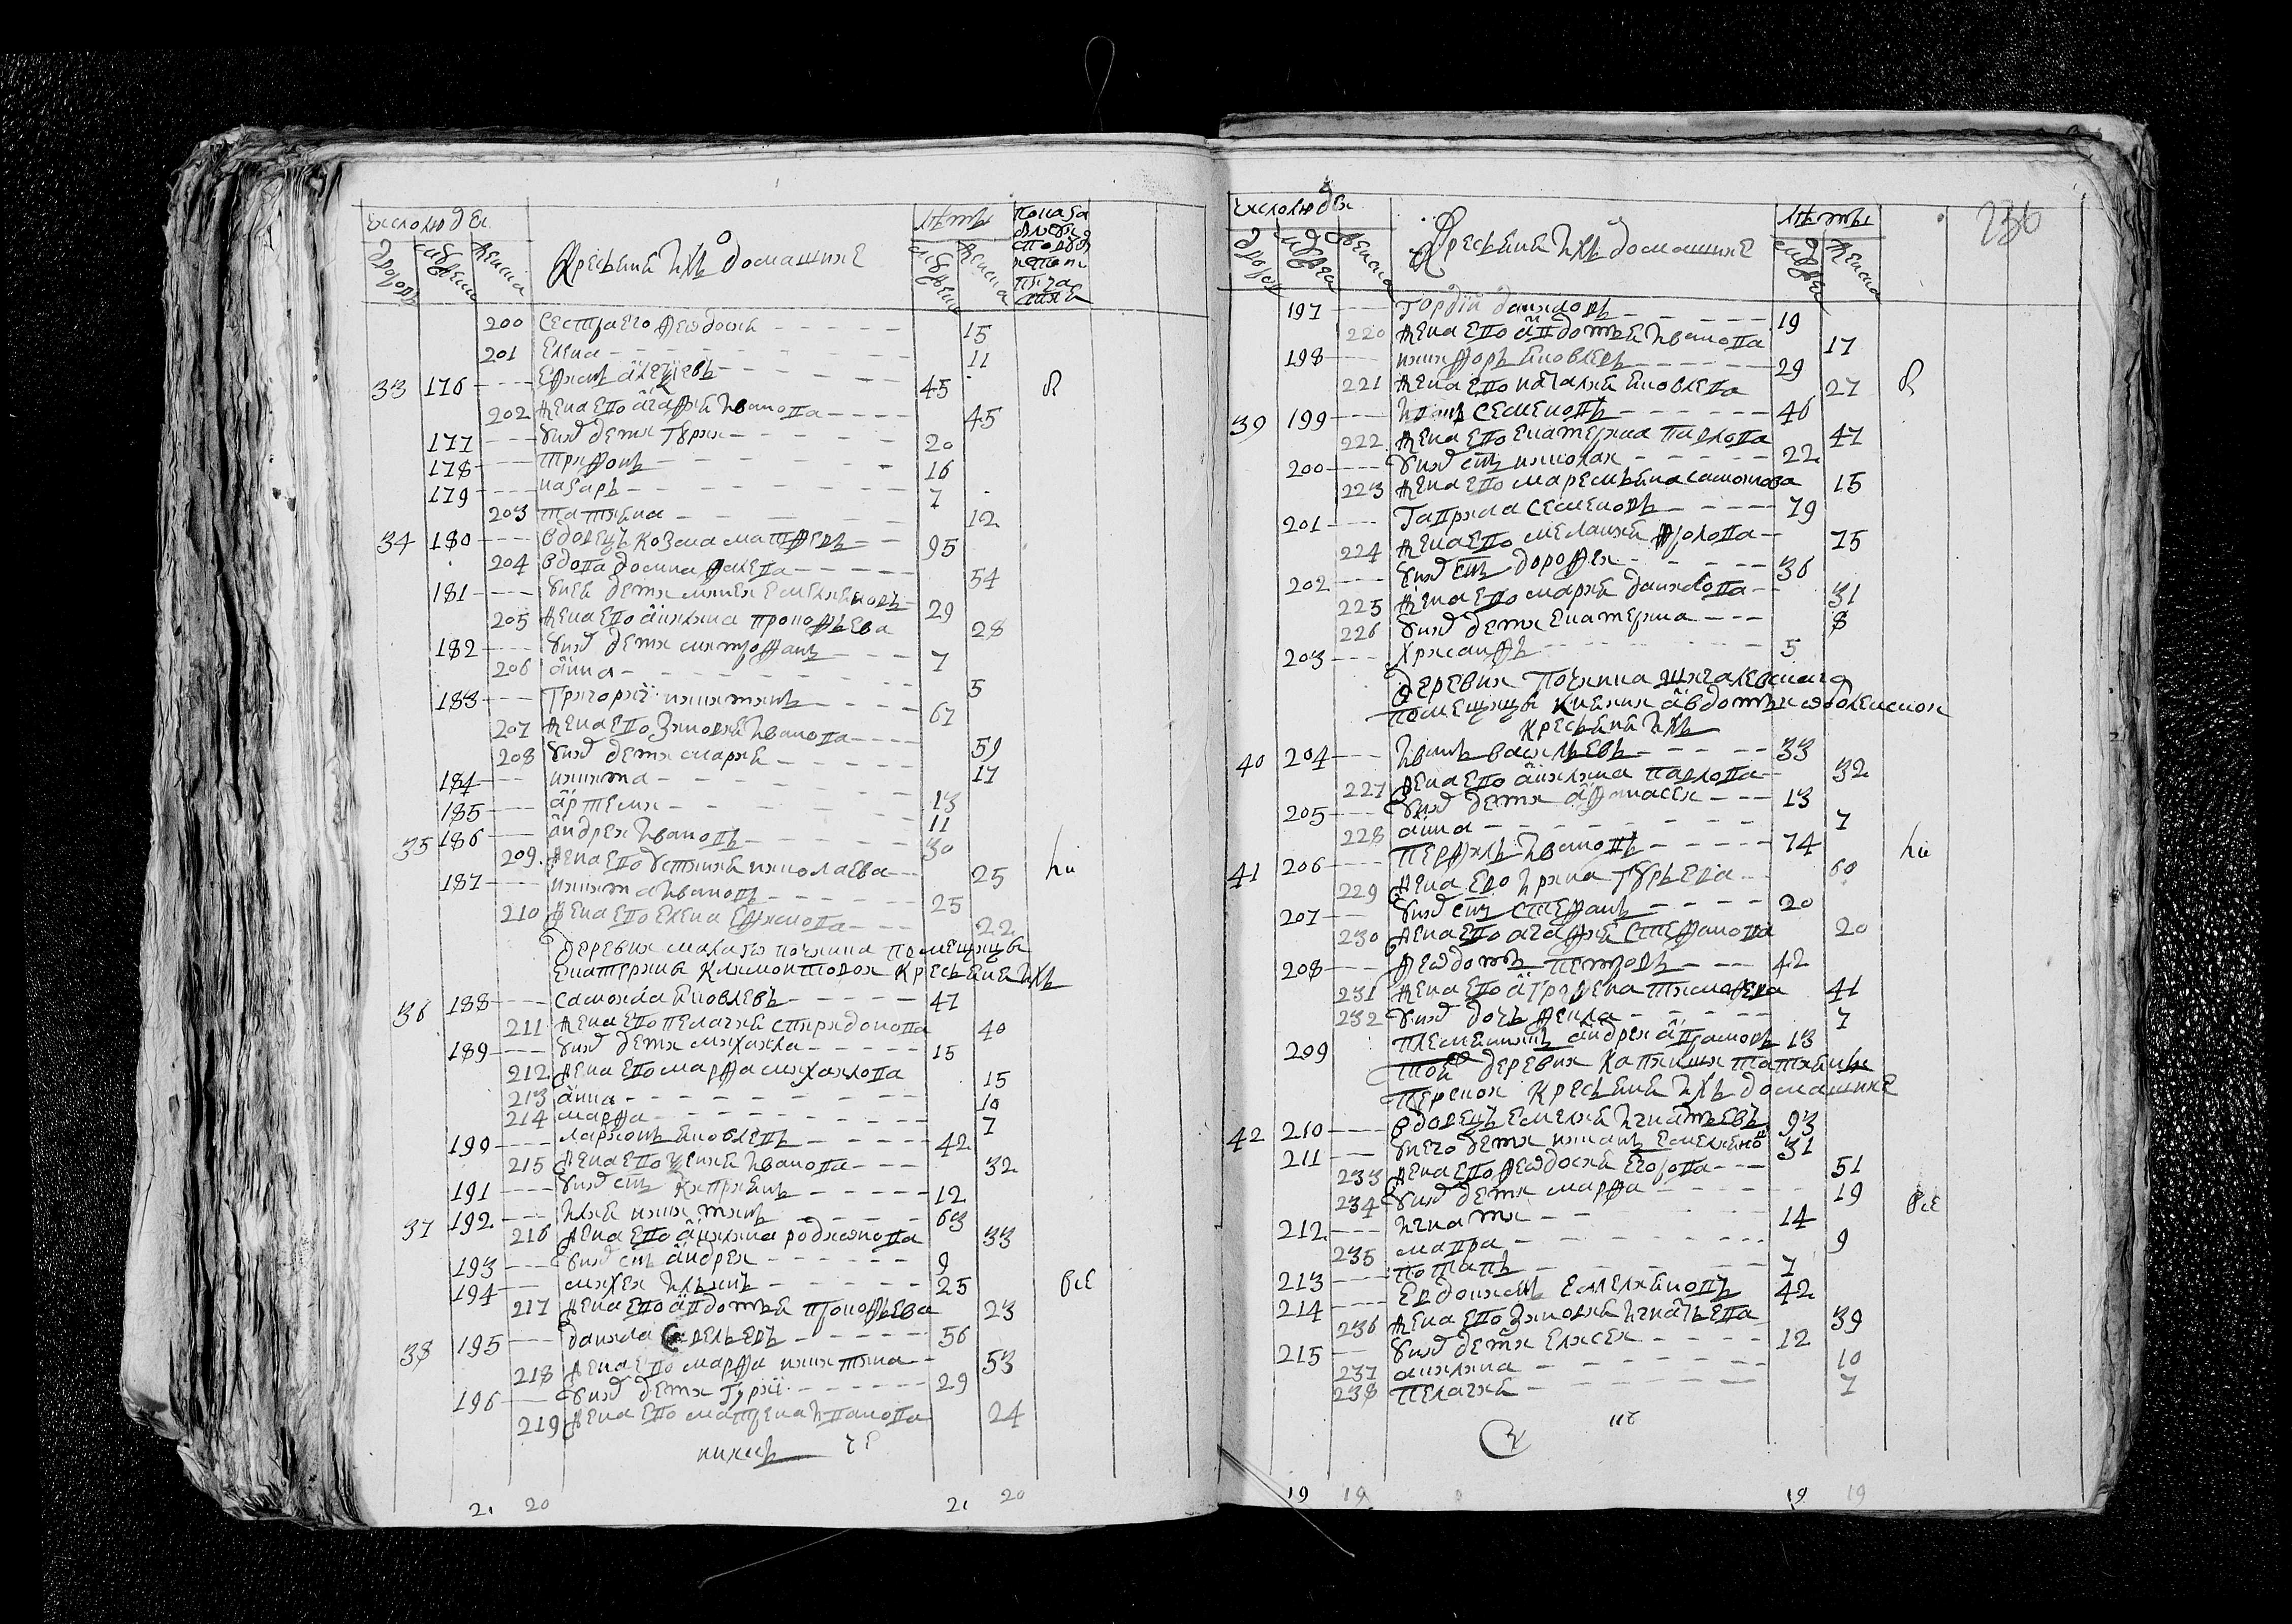 число люде
дворов
мужеска
женска
Крестьяне и их домашние
лета
мужеска
женска
200 Сестра его Феодосия 15
201 Елена 11
33 176 Ефим Алегиевъ 45
202 Жена его Агафия Иванова 45
177 У них дети Гури 20
178 Трифонъ 16
179 Назаръ 7
203 Татияна 12
34 180 Вдовецъ Козма Матфеевъ 95
204 Вдова Домна 54
181 У нея дети Мин Емелияновъ 29
205 Жена его Акилина Прокофьева 28
182 У них дети Митрофанъ 7
206 Анна 5
183 Григорий Никитинъ 67
207 Жена его Зиновия Иванова 59
208 У них дети Мария 17
184 Никита 13
185 Артеми 11
35 186 Андреи Ивановъ 30
209 Жена его Устиния Николаева 25
187 Никита Ивановъ 25
210 Жена его Елена Ефимова 22
Деревни Малаго Починка помещицы
Екатерины Климонтовой крестьяне и их
36 188 Самоила Яковлевъ 47
211 Жена его Пелагия Спиридонова 40
189 У них дети Михаила 15
212 Жена его Марфа Михаилова 15
213 Анна 10
214 Марфа 7
190 Ларионъ Яковлевъ 42
215 Жена его Ксения Иванова 32
191 У них сынъ Киприянъ 12
37 192 Илия Никитинъ 63
216 Жена его Акилина Родионова 33
193 У них сынъ Андреи 9
194 Михеи Ильинъ 25
217 Жена его Авдотия Прокофьева 23
38 195 Данила Савельевъ 56
218 Жена его Марфа Никитина 53
196 У них дети Гурий 29
219 Жена его Матрена Иванова 24
21 20 21 20
236
число люде
дворов
мужеска
женска
Крестьяне и их домашние
лета
мужеска
женска
197 Гордий Даниловъ 19
220 Жена его Авдотия Иванова 17
198 Никифоръ Яковлевъ 29
221 Жена его Наталия Яковлева 27
39 199 Иванъ Семеновъ 46
222 Жена его Екатерина Павлова 47
200 У них сынъ Николаи 22
223 Жена его Маремьяна Самоилова 15
201 Гаврила Семеновъ 79
224 Жена его Мелания Фролова 75
202 У них сынъ Дорофеи 36
225 Жена его Мария Данилова 31
226 У них дети Екатерина 8
203 Хрисанфъ 5
Деревни Починка Шигалевскаго
помещицы княжни Авдотьи Оболенскои
крестьяне и их
40 204 Иванъ Васильевъ 33
227 Жена его Акилина Павлова 32
205 У них дети Афанасеи 13
228 Анна 7
41 206 Перфилъ Ивановъ 74
229 Жена его Ирина Гурьева 60
207 У них сынъ Стефанъ 20
230 Жена его Агафия Стефанова 20
208 Феодотъ Петровъ 42
231 Жена его Аграфена Тимофеева 41
232 У них дочь Фекла 7
209 Племянникъ Андреи Аврамовъ 13
Той деревни Капнинши Татияны
крестьяне и их домашние
42 210 Вдовецъ Емелия Игнатьевъ 93
211 У него дети Никанъ Емелияно 31
233 Жена его Феодосия Егорова 51
234 У них дети Марфа 19
212 Игнати 14
235 Мавра 9
213 Потапъ 7
214 Евдокимъ Емелияновъ 42
236 Жена его Зиновия Игнатьева 39
215 У них дети Елисеи 12
237 Акилина 10
238 Пелагия 7
19 19 19 19